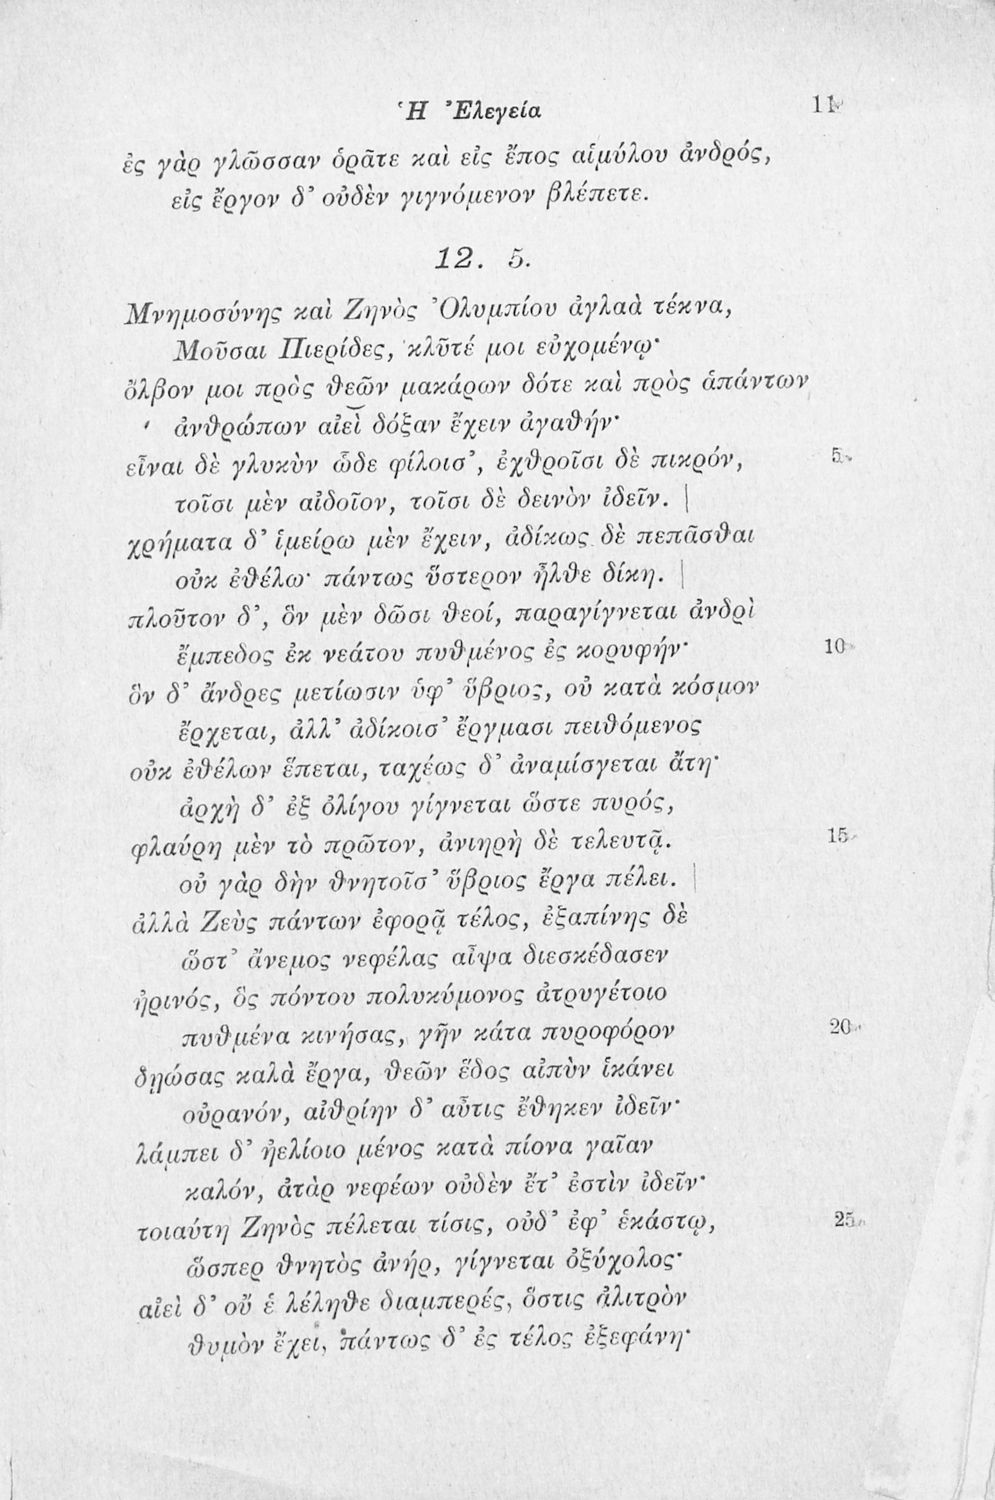 Ἡ Ἐλεγεία 11
ἐς γὰρ γλῶσσαν ὁρᾶτε καὶ εἰς ἔπος αἱμύλου ἀνδρός,
εἰς ἔργον δ' οὐδὲν γιγνόμενον βλέπετε.
12. 5.
Μνημοσύνης καὶ Ζηνὸς Ὀλυμπίου ἀγλαὰ τέκνα,
Μοῦσαι Πιερίδες, κλῦτέ μοι εὐχομένῳ·
ὄλβον μοι πρὸς θεῶν μακάρων δότε καὶ πρὸς ἁπάντων
ἀνθρώπων αἰεὶ δόξαν ἔχειν ἀγαθήν·
εἶναι δὲ γλυκὺν ὧδε φίλοισ', ἐχθροῖσι δὲ πικρόν, 5
τοῖσι μὲν αἰδοῖον, τοῖσι δὲ δεινὸν ἰδεῖν.
χρήματα δ' ἱμείρω μὲν ἔχειν, ἀδίκως δὲ πεπᾶσθαι
οὐκ ἐθέλω· πάντως ὕστερον ἦλθε δίκη.
πλοῦτον δ', ὃν μὲν δῶσι θεοί, παραγίγνεται ἀνδρὶ
ἔμπεδος ἐκ νεάτου πυθμένος ἐς κορυφήν· 10
ὃν δ' ἄνδρες μετίωσιν ὑφ' ὕβριος, οὐ κατὰ κόσμον
ἔρχεται, ἀλλ' ἀδίκοισ' ἔργμασι πειθόμενος
οὐκ ἐθέλων ἕπεται, ταχέως δ' ἀναμίσγεται ἄτη·
ἀρχὴ δ' ἐξ ὀλίγου γίγνεται ὥστε πυρός,
φλαύρη μὲν τὸ πρῶτον, ἀνιηρὴ δὲ τελευτᾷ. 15
οὐ γὰρ δὴν θνητοῖσ' ὕβριος ἔργα πέλει.
ἀλλὰ Ζεὺς πάντων ἐφορᾷ τέλος, ἐξαπίνης δὲ
ὥστ' ἄνεμος νεφέλας αἶψα διεσκέδασεν
ἠρινός, ὃς πόντου πολυκύμονος ἀτρυγέτοιο
πυθμένα κινήσας, γῆν κάτα πυροφόρον 20
δῃώσας καλὰ ἔργα, θεῶν ἕδος αἰπὺν ἱκάνει
οὐρανόν, αἰθρίην δ' αὖτις ἔθηκεν ἰδεῖν·
λάμπει δ' ἠελίοιο μένος κατὰ πίονα γαῖαν
καλόν, ἀτὰρ νεφέων οὐδὲν ἔτ' ἐστὶν ἰδεῖν·
τοιαύτη Ζηνὸς πέλεται τίσις, οὐδ' ἐφ' ἑκάστῳ, 25
ὥσπερ θνητὸς ἀνήρ, γίγνεται ὀξύχολος·
αἰεὶ δ' οὔ ἑ λέληθε διαμπερές, ὅστις ἀλιτρὸν
θυμὸν ἔχει, πάντως δ' ἐς τέλος ἐξεφάνη·